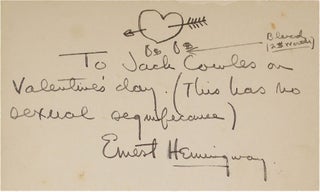 Blood
(2$ worth)
To Jack Cowles on
Valentine's day. (This has no
sexual significance)
Ernest Hemingway.